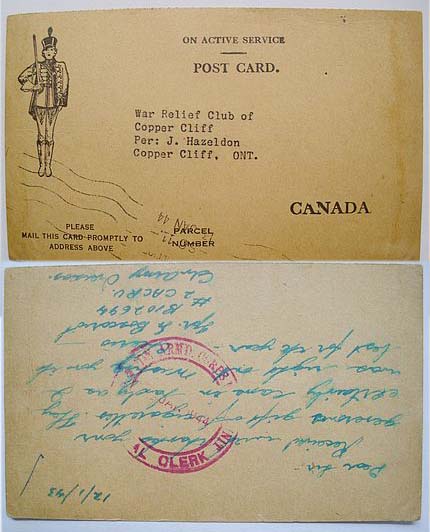 ON ACTIVE SERVICE
POST CARD.
War Relief Club of
Copper Cliff
Per: J. Hazeldon
Copper Cliff, ONT.
CANADA
PLEASE
MAIL THIS CARD PROMPTLY TO
ADDRESS ABOVE
PARCEL
NUMBER
11
JAN 44
12/1/43
Dear Sir:-
Received with thanks your
generous gift of cigarettes. They
certainly came in handy as I
was right out. Wish you the
best for the year.
Spr.
B102694
#2 CACRU
Army Overseas
CLERK